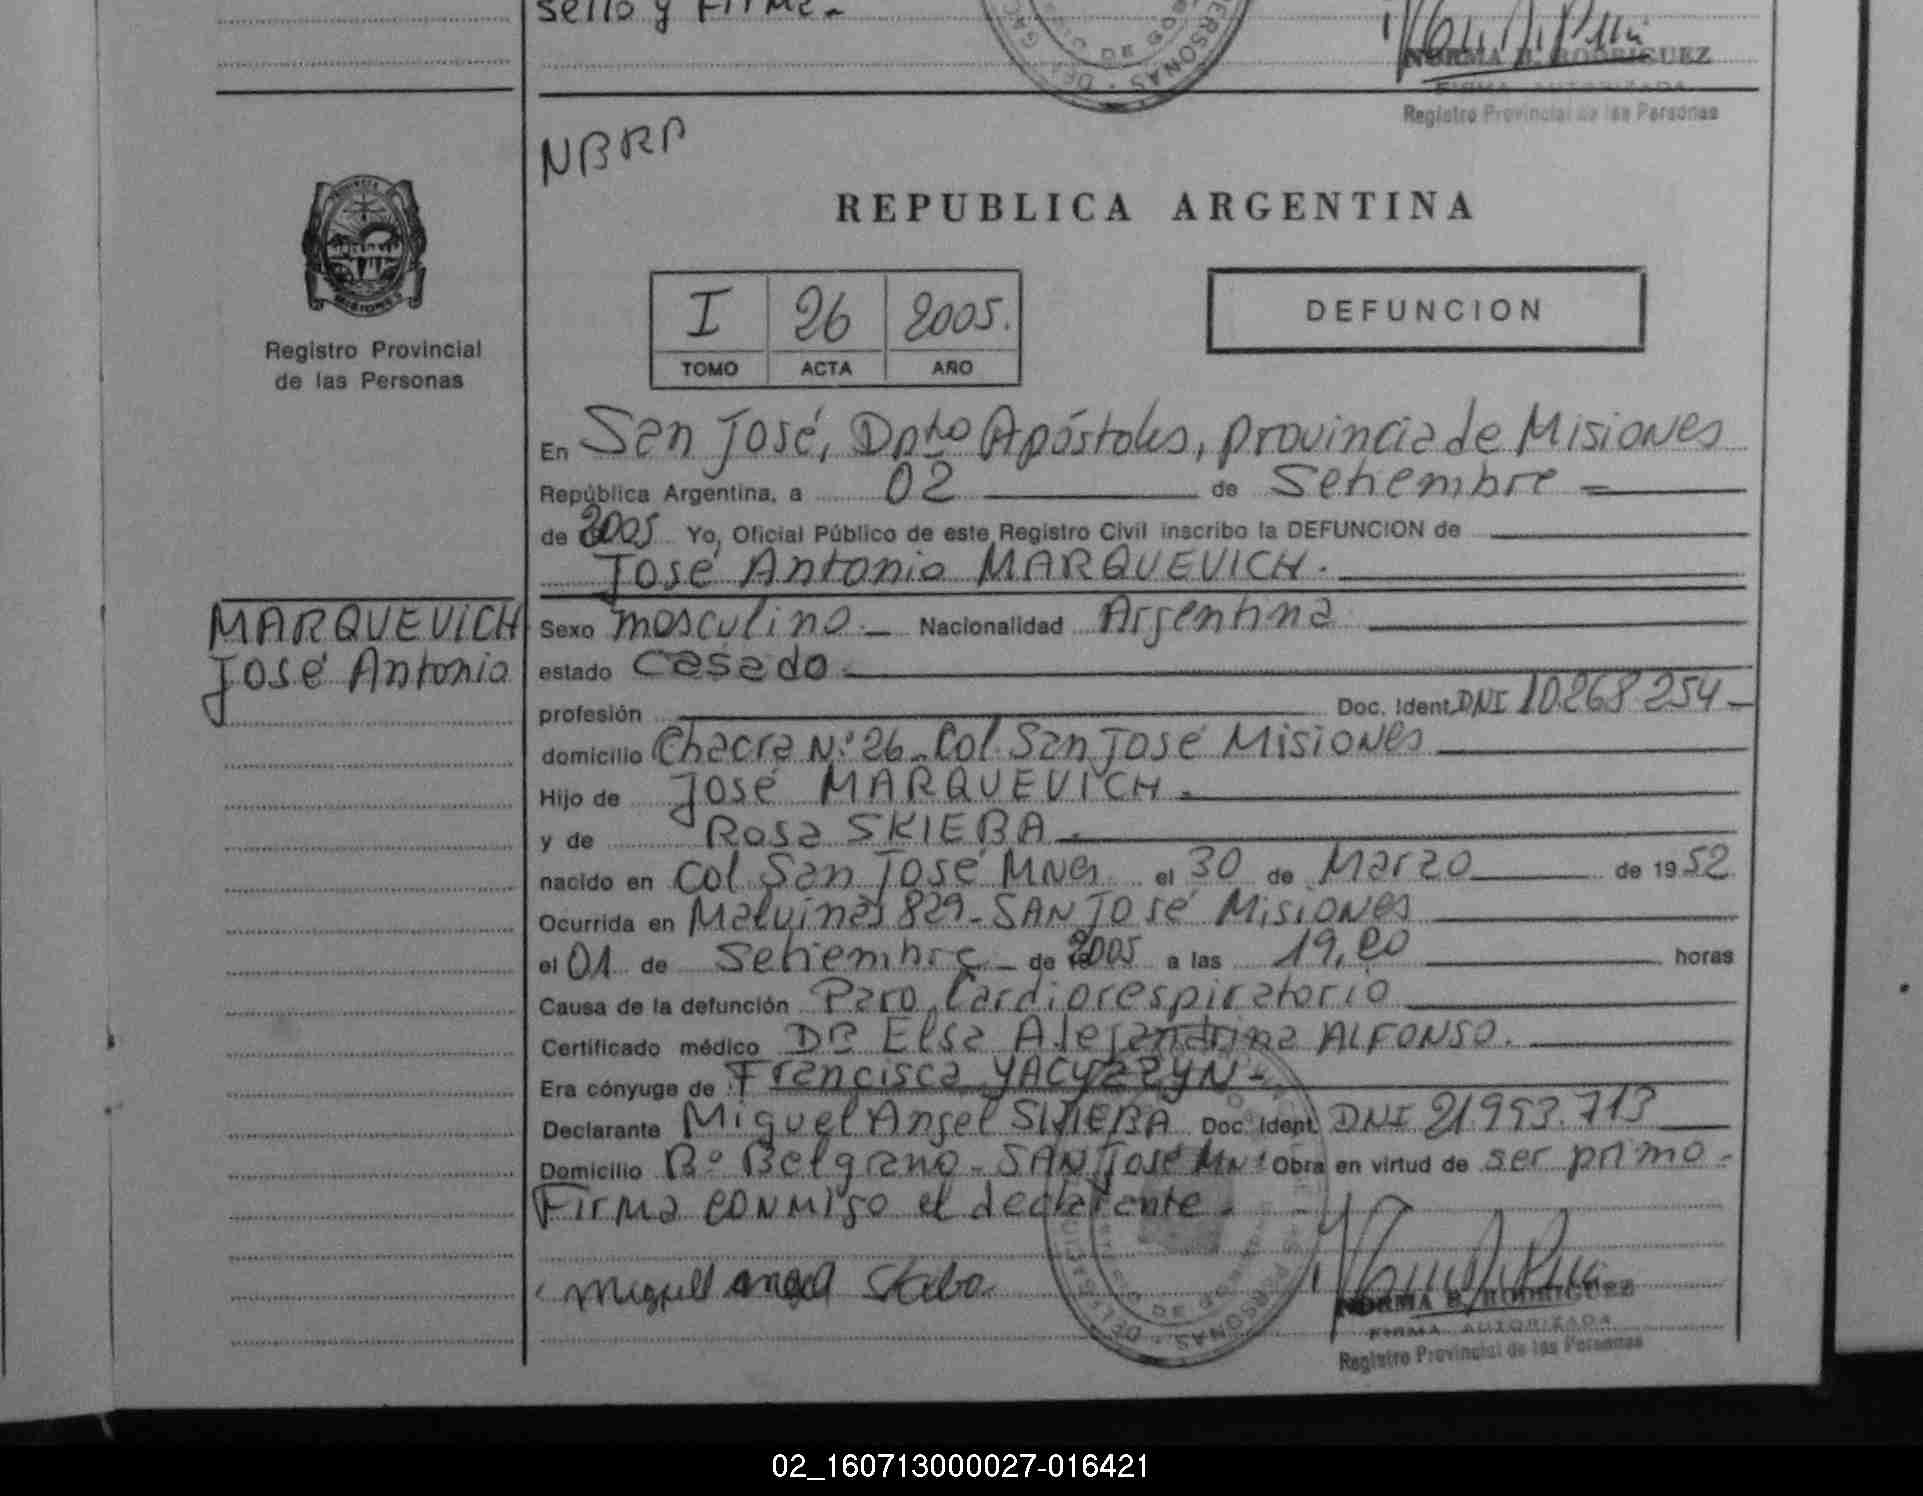 sello y Firma.
NORMA B. RODRIGUEZ
FIRMA AUTORIZADA
Registro Provincial de las Personas
NBRP
REPUBLICA ARGENTINA
I 26 2005.
TOMO ACTA AÑO
DEFUNCION
Registro Provincial
de las Personas
En San José, Dpto Apóstoles, provincia de Misiones
República Argentina, a 02 de Setiembre
de 2005 Yo, Oficial Público de este Registro Civil inscribo la DEFUNCION de
José Antonio MARQUEVICH.
MARQUEVICH
José Antonio
Sexo masculino. Nacionalidad Argentina
estado Casado.
profesión Doc. Ident. DNI 10.268.254
domicilio Chacra Nº 26. Col. San José Misiones
Hijo de José MARQUEVICH.
y de Rosa SKIEBA.
nacido en Col San José Mnes el 30 de Marzo de 1952
Ocurrida en Malvinas 829 - SAN José Misiones
el 01 de Setiembre de 2005 a las 19,00 horas
Causa de la defunción Paro Cardiorespiratorio
Certificado médico Dra Elsa Alejandrina ALFONSO.
Era cónyuge de Francisca YACYSZYN
Declarante Miguel Angel SKIEBA Doc. Ident. DNI 21.953.713
Domicilio Bº Belgrano - SAN José Mn. Obra en virtud de ser primo.
Firma conmigo el declarante.
Miguel angel
NORMA B. RODRIGUEZ
FIRMA AUTORIZADA
Registro Provincial de las Personas
02_160713000027-016421